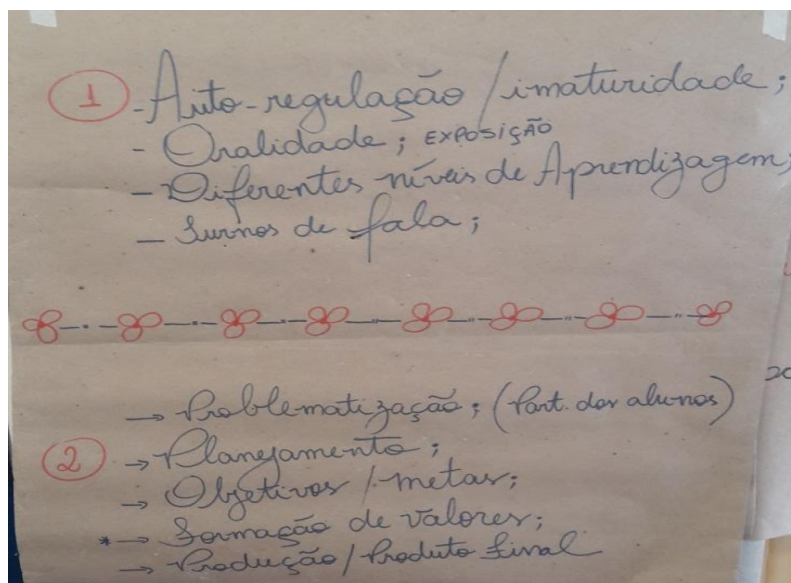 1 - Auto-regulação / imaturidade;
- Oralidade; EXPOSIÇÃO
- Diferentes níveis de Aprendizagem;
- Turnos de fala;
→ Problematização; (Part. dos alunos)
2 → Planejamento;
→ Objetivos / metas;
* → Formação de valores;
→ Produção / Produto final